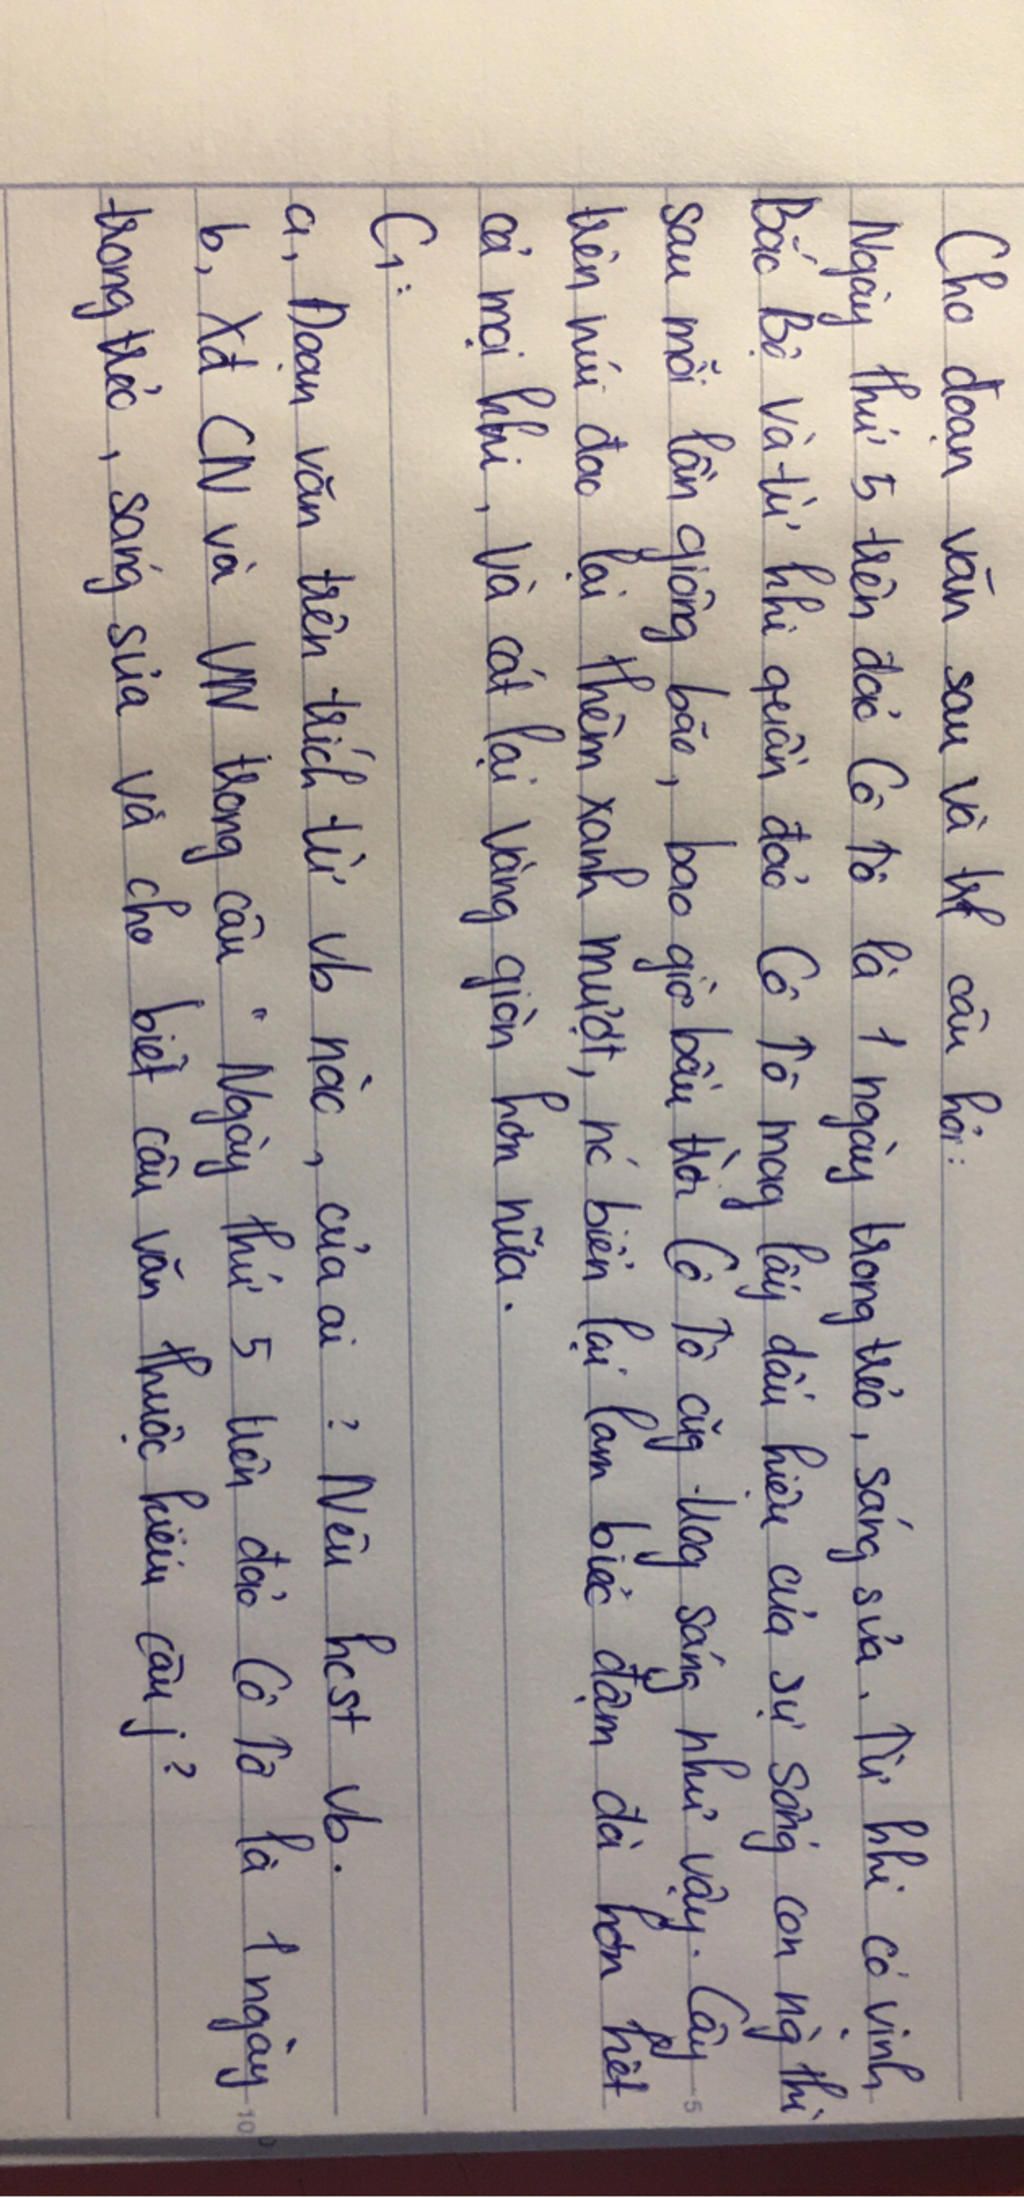 Cho đoạn văn sau và trl câu hỏi:
Ngày thứ 5 trên đảo Cô Tô là 1 ngày trong trẻo, sáng sủa. Từ khi có vịnh
Bắc Bộ và từ khi quần đảo Cô Tô mag lấy dấu hiệu của sự sống con ng` thì
sau mỗi lần giông bão, bao giờ bầu trời Cô Tô cũg trog sáng như vậy. Cây
trên núi đảo lại thêm xanh mượt, nc biển lại lam biếc đậm đà hơn hết
cả mọi khi, và cát lại vàng giòn hơn nữa.
C1:
a, Đoạn văn trên trích từ vb nào, của ai? Nêu hcst vb.
b, Xđ CN và VN trong câu "Ngày thứ 5 trên đảo Cô Tô là 1 ngày
trong trẻo, sáng sủa và cho biết câu văn thuộc kiểu câu j?
5
10